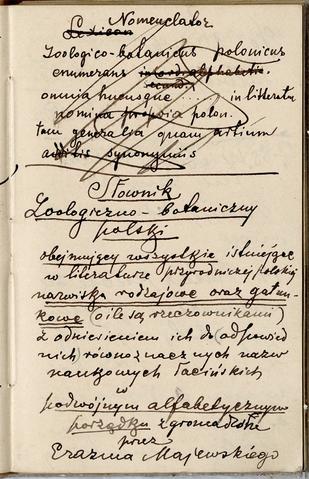 Nomenclator
Lexicon
Zoologico-botanicus polonicus
enumerans in ordine alphabetic.
secund.
omnia hucusque .... in litteratur
nomina propria polon.
tam generalia quam artium
synonymis
Słownik
Zoologiczno-botaniczny
polski
obejmujący wszystkie istniejące
w literaturze przyrodniczej polskiej
nazwiska rodzajowe oraz gatun-
kowe (o ile są rzeczownikami)
z odniesieniem ich do (odpowied
nich) równoznacznych nazw
naukowych łacińskich
w
podwójnym alfabetycznym
porządku zgromadzone
przez
Erazma Majewskiego